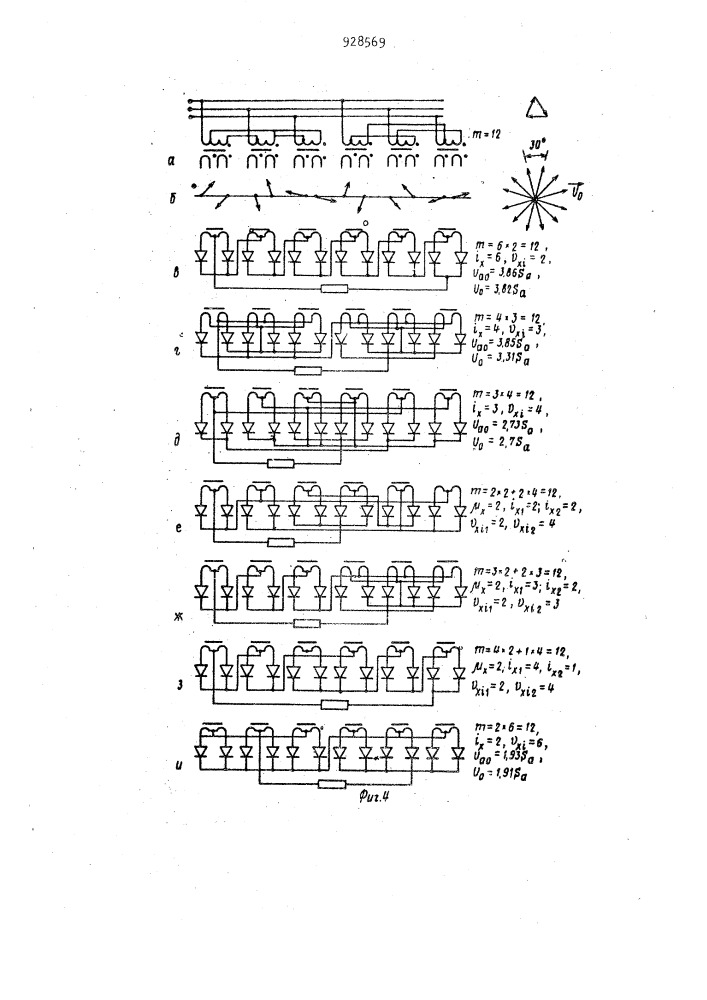 928569
m=12
а
30°
б
U₀
в
m=6×2=12,
iₓ=6, υₓᵢ=2,
Uₐ₀=3,86Sₐ,
U₀=3,82Sₐ
г
m=4×3=12,
iₓ=4, υₓᵢ=3,
Uₐ₀=3,85Sₐ,
U₀=3,31Sₐ
д
m=3×4=12,
iₓ=3, υₓᵢ=4,
Uₐ₀=2,73Sₐ,
U₀=2,7Sₐ
е
m=2×2+2×4=12,
μₓ=2, iₓ₁=2; iₓ₂=2,
υₓᵢ₁=2, υₓᵢ₂=4
ж
m=3×2+2×3=12,
μₓ=2, iₓ₁=3; iₓ₂=2,
υₓᵢ₁=2, υₓᵢ₂=3
з
m=4×2+1×4=12,
μₓ=2, iₓ₁=4, iₓ₂=1,
υₓᵢ₁=2, υₓᵢ₂=4
и
m=2×6=12,
iₓ=2, υₓᵢ=6,
Uₐ₀=1,93Sₐ,
U₀=1,91Sₐ
Фиг.4